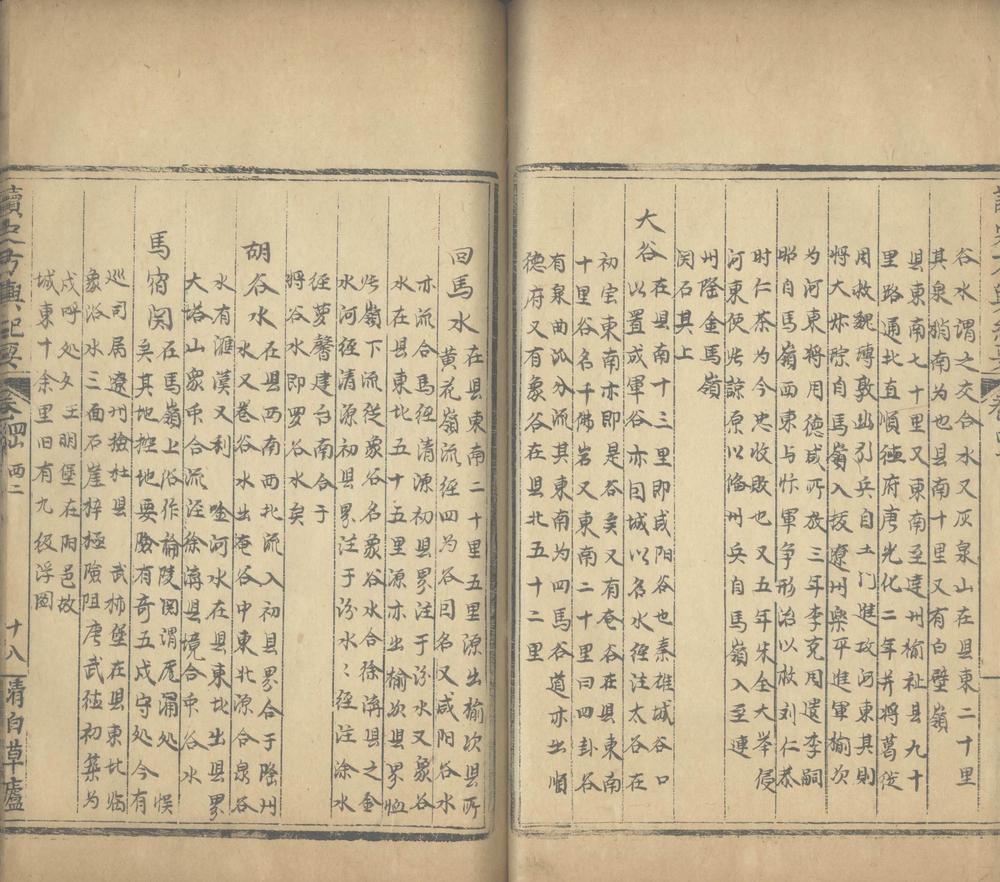 谷水謂之交合水又灰泉山在县東二十里
其泉稍南为也县南十里又有白壁嶺
县東南七十里又東南至達州榆社县九十
里路通北直順德府唐光化二年并將葛從
周救魏博敦幽引兵自土门進攻河東其別
將大叔琮自馬嶺入拔遼州樂平進軍榆次
为河東將周德威所敗三年李克用遣李嗣
昭自馬嶺西東与忭軍争形治以救刘仁恭
时仁恭为今忠收敗也又五年朱全大举侵
河東使些諒原以偹州兵自馬嶺入至連
州隆金馬嶺
関石其上
大谷 在县南十三里即咸阳谷也秦雄城谷口
谷以置戍軍谷亦曰城以名水徑注太谷在
初宝東南亦即是谷矣又有奄谷在县東南
十里谷名千佛岩又東南二十里曰四卦谷
有泉曲㳂分流其東南为四馬谷道亦出順
德府又有象谷在县北五十二里
回馬水 在县東南二十里五里源出榆次县所
黄花嶺流经四为谷曰名又咸阳谷水
亦流合馬经清源初县界注于汾水又象谷
水在县東北五十五里源亦出榆次县界恤
些嶺下流從象谷名象谷水合徐溝县之金
水河径清源初县界注于汾水:径注涂水
径萝馨建台南合于
將谷水即罗谷水矣
胡谷水 在县西南西北流入初县界合于隆州
水又巷谷水出奄谷中東北源合泉谷
水有滙漢又利 唫河水在县東北出县界
大塔山衆帀合流泾徐溝县境合中谷水
馬宿関 在馬嶺上俗作論陵関謂尾漏処悮
矣其地控地要險有奇五戍守処今有
巡司屆遼州撿杜县 武柿堡在县東北临
象浴水三面石崖梓極險阻唐武德初築为
戍呼処攵王明堡在阳邑故
城東十余里旧有九级浮圖
讀史方輿紀要 卷之四 西二 十八 清白草廬